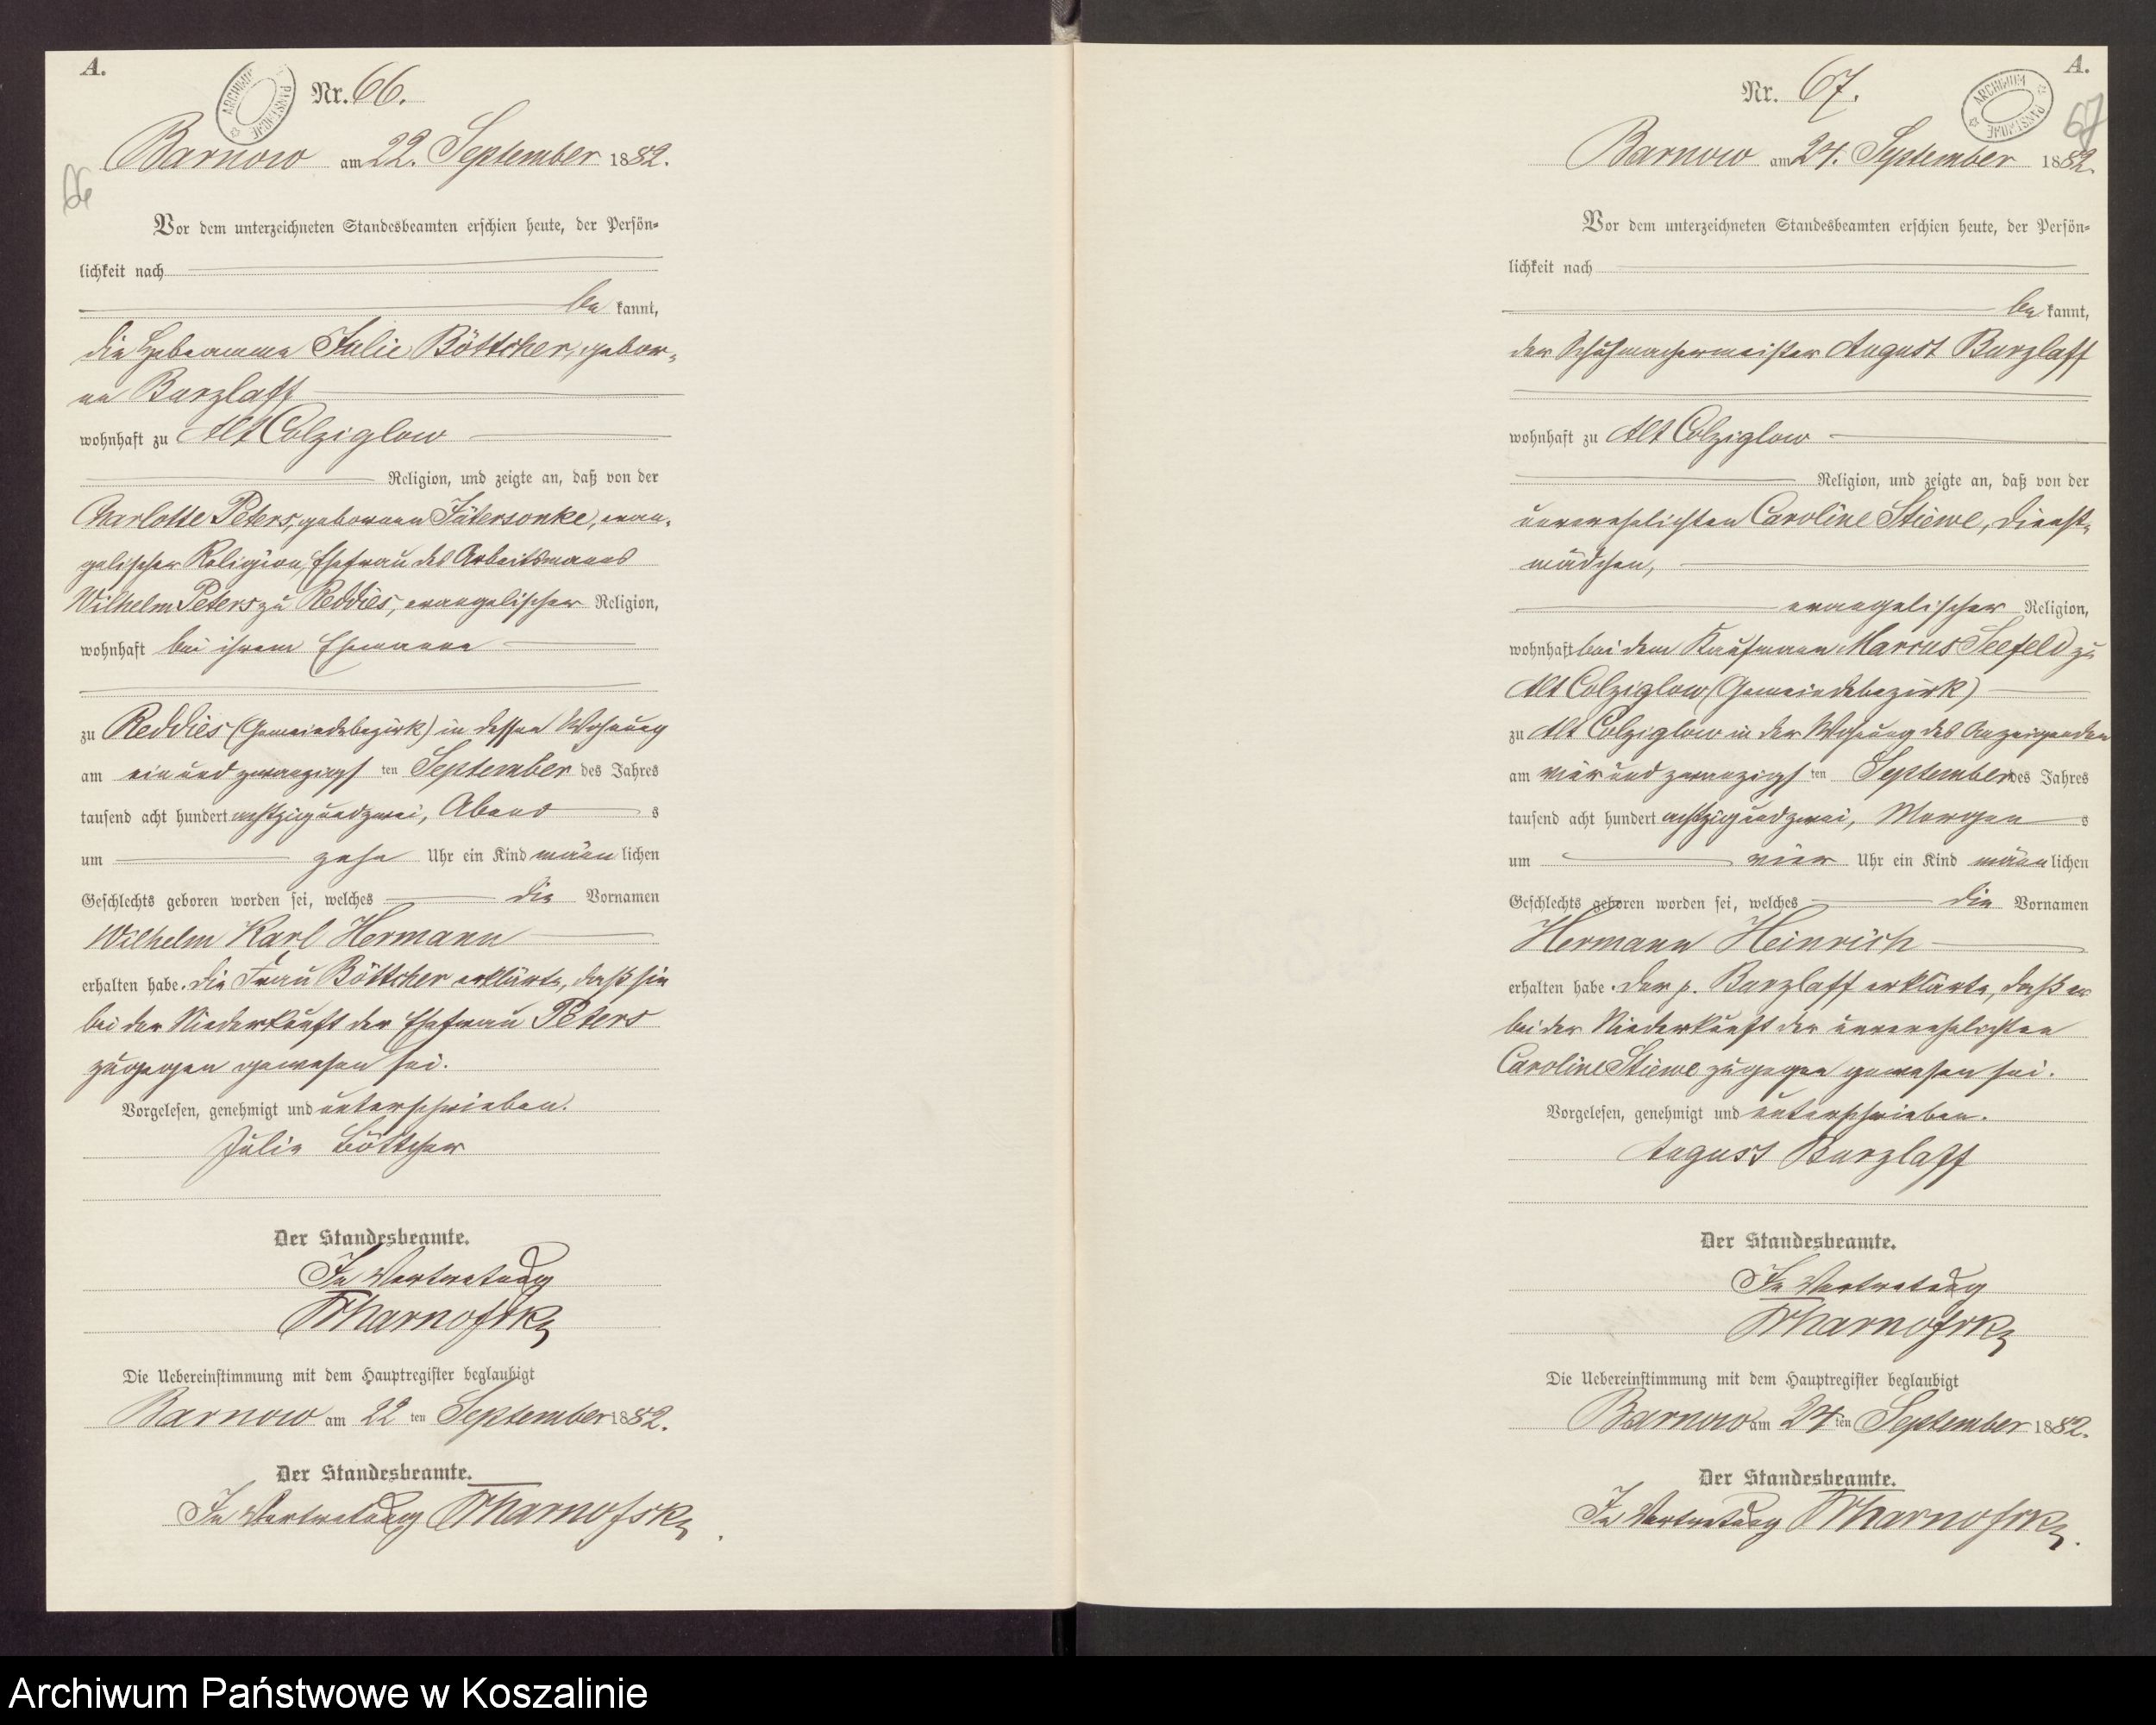 A.
ARCHIWUM PAŃSTWOWE
Nr. 66.
Barnow am 22. September 1882.
66
Vor dem unterzeichneten Standesbeamten erschien heute, der Persön=
lichkeit nach
be kannt,
die Hebeamme Julie Böttcher, gebor-
ne Barzlaff
wohnhaft zu Alt Colziglow
Religion, und zeigte an, daß von der
Charlotte Peters, gebornen Jätersonke, evan-
gelischer Religion, Ehefrau des Arbeitsmanns
Wilhelm Peters zu Reddies, evangelischer Religion,
wohnhaft bei ihrem Ehemanne
zu Reddies (Gemeindebezirk) in dessen Wohnung
am ein und zwanzigs ten September des Jahres
tausend acht hundert achtzig und zwei, Abend s
um zehn Uhr ein Kind männ lichen
Geschlechts geboren worden sei, welches die Vornamen
Wilhelm Karl Hermann
erhalten habe. Die Frau Böttcher erklärte, daß sie
bei der Niederkunft der Ehefrau Peters
zugegen gewesen sei.
Vorgelesen, genehmigt und unterschrieben.
Julie Böttcher
Der Standesbeamte.
In Vertretung
Die Uebereinstimmung mit dem Hauptregister beglaubigt
Barnow am 22 ten September 1882.
Der Standesbeamte.
In Vertretung
A.
ARCHIWUM PAŃSTWOWE
Nr. 67.
67
Barnow am 24. September 1882.
Vor dem unterzeichneten Standesbeamten erschien heute, der Persön=
lichkeit nach
be kannt,
der Schuhmachermeister August Barzlaff
wohnhaft zu Alt Colziglow
Religion, und zeigte an, daß von der
unverehelichten Caroline Stiewe, Dienst-
mädchen,
evangelischer Religion,
wohnhaft bei dem Kaufmann Marcus Seefeld zu
Alt Colziglow (Gemeindebezirk)
zu Alt Colziglow in der Wohnung des Anzeigenden
am vier und zwanzigs ten September des Jahres
tausend acht hundert achtzig und zwei, Morgen s
um vier Uhr ein Kind männ lichen
Geschlechts geboren worden sei, welches die Vornamen
Hermann Heinrich
erhalten habe. Der p. Barzlaff erklärte, daß er
bei der Niederkunft der unverehelichten
Caroline Stiewe zugegen gewesen sei.
Vorgelesen, genehmigt und unterschrieben.
August Barzlaff
Der Standesbeamte.
In Vertretung
Die Uebereinstimmung mit dem Hauptregister beglaubigt
Barnow am 24 ten September 1882.
Der Standesbeamte.
In Vertretung
Archiwum Państwowe w Koszalinie